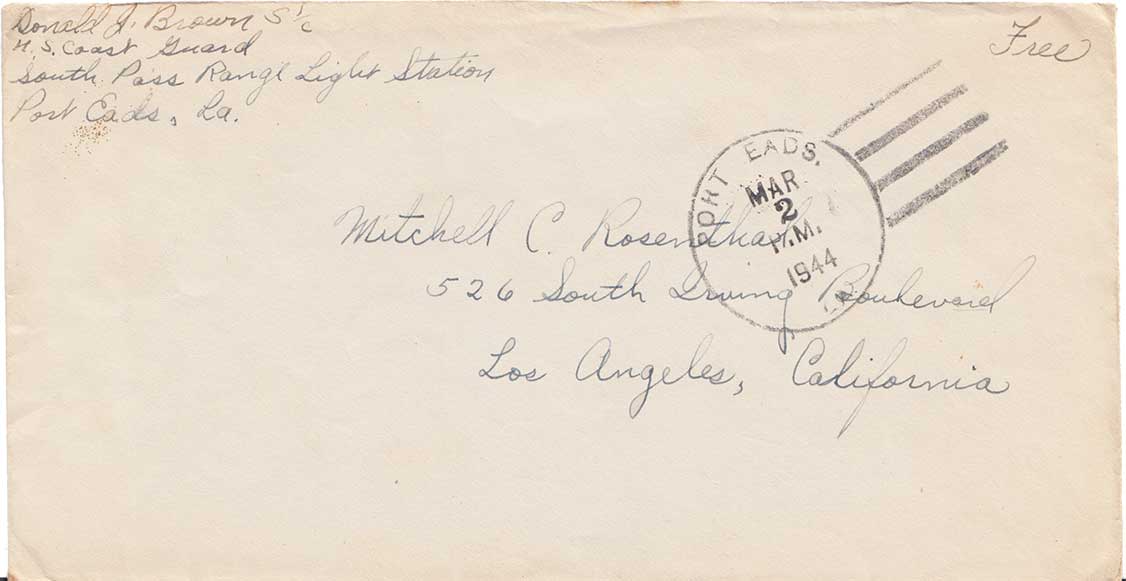 Donald J. Brown S 1/c
U.S. Coast Guard
South Pass Range Light Station
Port Eads, La.
Free
PORT EADS.
MAR
2
P.M.
1944
LA.
Mitchell C. Rosenthal
526 South Irving Boulevard
Los Angeles, California